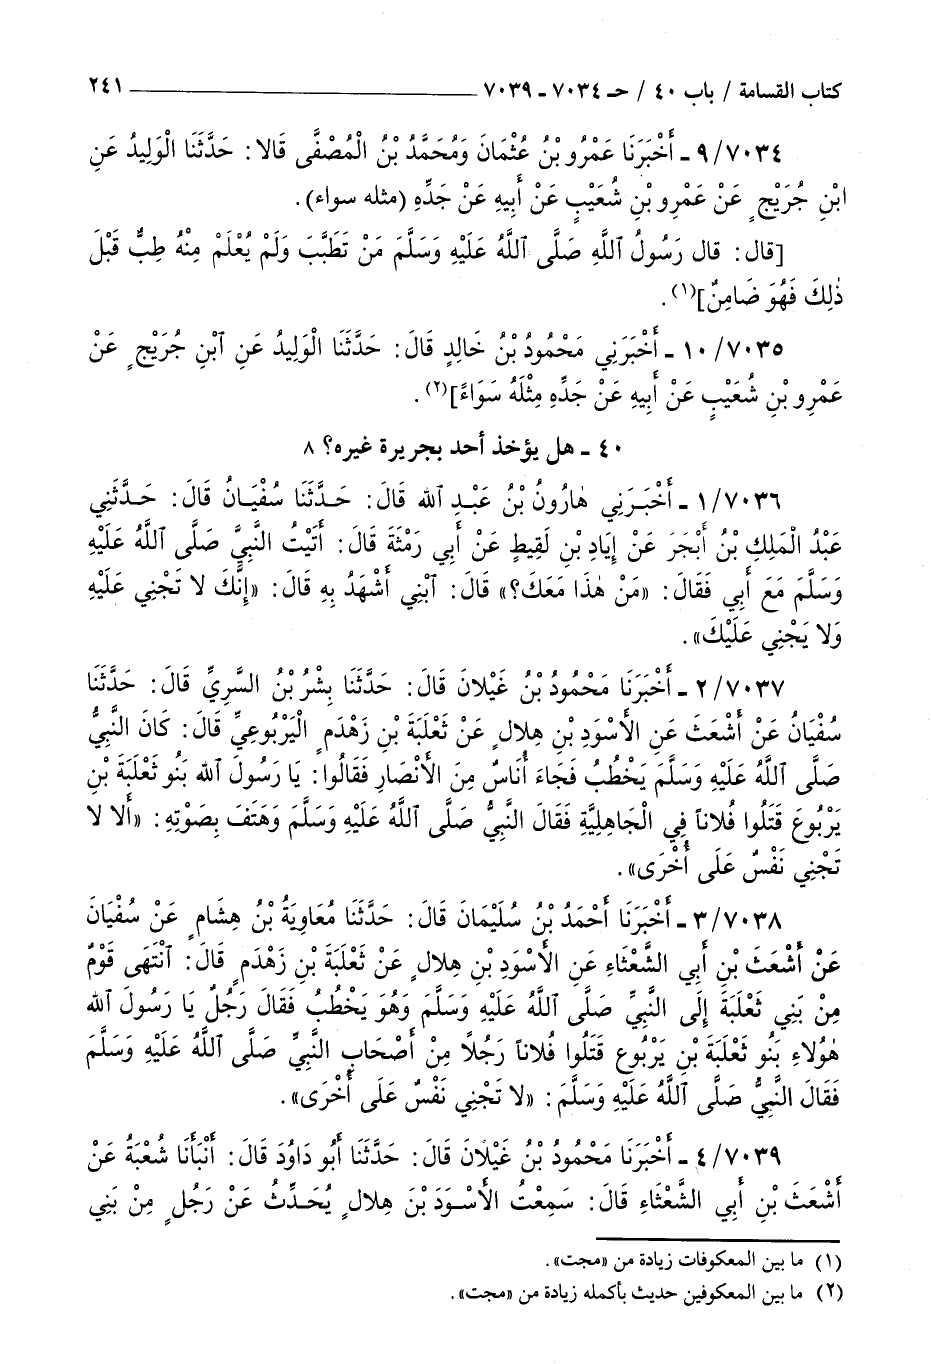 كتاب القسامة / باب ٤٠ / حـ ٧٠٣٤ - ٧٠٣٩ ٢٤١
٩/٧٠٣٤ - أَخْبَرَنَا عَمْرُو بْنُ عُثْمَانَ وَمُحَمَّدُ بْنُ الْمُصْفَّى قَالا: حَدَّثَنَا الْوَلِيدُ عَنِ
ابْنِ جُرَيْجٍ عَنْ عَمْرِو بْنِ شُعَيْبٍ عَنْ أَبِيهِ عَنْ جَدِّهِ (مثله سواء).
[قال: قال رَسُولُ ٱللَّهِ صَلَّى ٱللَّهُ عَلَيْهِ وَسَلَّمَ مَنْ تَطَبَّبَ وَلَمْ يُعْلَمْ مِنْهُ طِبٌّ قَبْلَ
ذٰلِكَ فَهُوَ ضَامِنٌ](١).
١٠/٧٠٣٥ - أَخْبَرَنِي مَحْمُودُ بْنُ خَالِدٍ قَالَ: حَدَّثَنَا الْوَلِيدُ عَنِ ٱبْنِ جُرَيْجٍ عَنْ
عَمْرِو بْنِ شُعَيْبٍ عَنْ أَبِيهِ عَنْ جَدِّهِ مِثْلَهُ سَوَاءً](٢).
٤٠ - هل يؤخذ أحد بجريرة غيره؟ ٨
١/٧٠٣٦ - أَخْبَرَنِي هَارُونُ بْنُ عَبْدِ الله قَالَ: حَدَّثَنَا سُفْيَانُ قَالَ: حَدَّثَنِي
عَبْدُ الْمَلِكِ بْنُ أَبْجَرَ عَنْ إِيَادِ بْنِ لَقِيطٍ عَنْ أَبِي رَمْثَةَ قَالَ: أَتَيْتُ النَّبِيَّ صَلَّى ٱللَّهُ عَلَيْهِ
وَسَلَّمَ مَعَ أَبِي فَقَالَ: «مَنْ هٰذَا مَعَكَ؟» قَالَ: ٱبْنِي أَشْهَدُ بِهِ قَالَ: «إِنَّكَ لا تَجْنِي عَلَيْهِ
وَلا يَجْنِي عَلَيْكَ».
٢/٧٠٣٧ - أَخْبَرَنَا مَحْمُودُ بْنُ غَيْلانَ قَالَ: حَدَّثَنَا بِشْرُ بْنُ السَّرِيِّ قَالَ: حَدَّثَنَا
سُفْيَانُ عَنْ أَشْعَثَ عَنِ الأَسْوَدِ بْنِ هِلالٍ عَنْ ثَعْلَبَةَ بْنِ زَهْدَمٍ الْيَرْبُوعِيِّ قَالَ: كَانَ النَّبِيُّ
صَلَّى ٱللَّهُ عَلَيْهِ وَسَلَّمَ يَخْطُبُ فَجَاءَ أُنَاسٌ مِنَ الأَنْصَارِ فَقَالُوا: يَا رَسُولَ الله بَنُو ثَعْلَبَةَ بْنِ
يَرْبُوعَ قَتَلُوا فُلاناً فِي الْجَاهِلِيَّةِ فَقَالَ النَّبِيُّ صَلَّى ٱللَّهُ عَلَيْهِ وَسَلَّمَ وَهَتَفَ بِصَوْتِهِ: «أَلا لا
تَجْنِي نَفْسٌ عَلَى أُخْرَى».
٣/٧٠٣٨ - أَخْبَرَنَا أَحْمَدُ بْنُ سُلَيْمَانَ قَالَ: حَدَّثَنَا مُعَاوِيَةُ بْنُ هِشَامٍ عَنْ سُفْيَانَ
عَنْ أَشْعَثَ بْنِ أَبِي الشَّعْثَاءِ عَنِ الأَسْوَدِ بْنِ هِلالٍ عَنْ ثَعْلَبَةَ بْنِ زَهْدَمٍ قَالَ: ٱنْتَهَى قَوْمٌ
مِنْ بَنِي ثَعْلَبَةَ إِلَى النَّبِيِّ صَلَّى ٱللَّهُ عَلَيْهِ وَسَلَّمَ وَهُوَ يَخْطُبُ فَقَالَ رَجُلٌ يَا رَسُولَ الله
هٰؤُلاءِ بَنُو ثَعْلَبَةَ بْنِ يَرْبُوعَ قَتَلُوا فُلاناً رَجُلاً مِنْ أَصْحَابِ النَّبِيِّ صَلَّى ٱللَّهُ عَلَيْهِ وَسَلَّمَ
فَقَالَ النَّبِيُّ صَلَّى ٱللَّهُ عَلَيْهِ وَسَلَّمَ: «لا تَجْنِي نَفْسٌ عَلَى أُخْرَى».
٤/٧٠٣٩ - أَخْبَرَنَا مَحْمُودُ بْنُ غَيْلانَ قَالَ: حَدَّثَنَا أَبُو دَاوُدَ قَالَ: أَنْبَأَنَا شُعْبَةُ عَنْ
أَشْعَثَ بْنِ أَبِي الشَّعْثَاءِ قَالَ: سَمِعْتُ الأَسْوَدَ بْنَ هِلالٍ يُحَدِّثُ عَنْ رَجُلٍ مِنْ بَنِي
(١) ما بين المعكوفات زيادة من «مجت».
(٢) ما بين المعكوفين حديث بأكمله زيادة من «مجت».